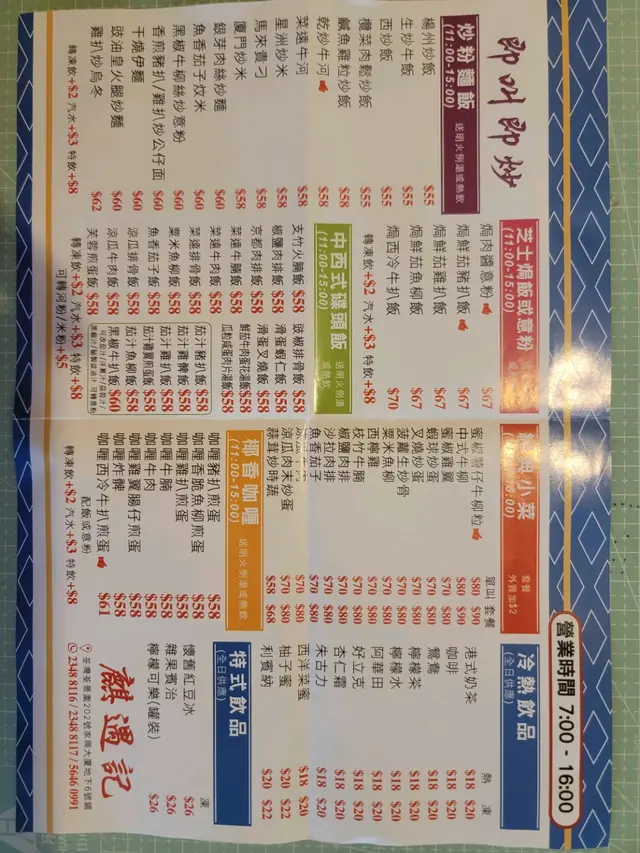 營業時間 7:00 - 16:00
即叫即炒
炒粉麵飯
(11:00-15:00)
送明火例湯或熱飲
楊州炒飯 $55
生炒牛飯 $55
西炒飯 $55
欖菜肉鬆炒飯 $55
鹹魚雞粒炒飯 $58
乾炒牛河 $58
菜遠牛河 $58
星洲炒米 $58
馬來貴刁 $58
廈門炒米 $58
銀芽肉絲炒麵 $60
魚香茄子炆米 $60
黑椒牛柳絲炒意粉 $60
香煎豬扒/雞扒炒公仔面 $60
干燒伊麵 $60
豉油皇火腿炒麵 $60
雞扒炒烏冬 $62
轉凍飲+$2 汽水+$3 特飲+$8
芝士焗飯或意粉
(11:00-15:00)
焗肉醬意粉 $67
焗鮮茄豬扒飯 $67
焗鮮茄雞扒飯 $67
焗鮮茄魚柳飯 $67
焗西冷牛扒飯 $70
轉凍飲+$2 汽水+$3 特飲+$8
中西式碟頭飯
(11:00-15:00)
送明火例湯或熱飲
支竹火腩飯 $58
椒鹽肉排飯 $58
京都肉排飯 $58
菜遠牛腩飯 $58
菜遠牛肉飯 $58
菜遠排骨飯 $58
粟米魚柳飯 $58
魚香茄子飯 $58
涼瓜排骨飯 $58
涼瓜牛肉飯 $58
芙蓉煎蛋飯 $58
豉椒排骨飯 $58
滑蛋蝦仁飯 $58
滑蛋叉燒飯 $58
鮮茄牛肉蛋花湯飯 $58
瓜粒咸蛋肉片湯飯 $58
茄汁豬扒飯 $58
茄汁雞髀飯 $58
茄汁雞扒飯 $58
茄汁雞翼煎蛋飯 $58
茄汁魚柳飯 $58
黑椒牛扒飯 $60
轉凍飲+$2 汽水+$3 特飲+$8
可轉河粉/米粉+$5
小菜
套餐
外賣加$2
單叫 套餐
蜜椒薯仔牛柳粒 $80 $90
中式牛柳 $80 $90
蜜椒雞翼 $70 $80
蝦球炒蛋 $70 $80
叉燒炒蛋 $70 $80
菠蘿生炒骨 $70 $80
粟米魚柳 $70 $80
西檸雞 $70 $80
枝竹牛腩 $70 $80
椒鹽肉排 $70 $80
沙拉肉排 $70 $80
魚香茄子 $70 $80
涼瓜肉末炒蛋 $70 $80
蒜茸炒時蔬 $58 $68
椰香咖喱
(11:00-15:00)
送明火例湯或熱飲
咖喱豬扒煎蛋 $58
咖喱香脆魚柳煎蛋 $58
咖喱雞扒煎蛋 $58
咖喱牛腩 $58
咖喱牛肉 $58
咖喱雞翼腸仔煎蛋 $58
咖喱炸髀 $58
咖喱西冷牛扒煎蛋 $61
配飯或意粉
轉凍飲+$2 汽水+$3 特飲+$8
冷熱飲品
(全日供應)
熱 凍
港式奶茶 $18 $20
咖啡 $18 $20
鴛鴦 $18 $20
檸檬茶 $18 $20
檸檬水 $18 $20
阿華田 $18 $20
好立克 $18 $20
杏仁霜 $18 $20
朱古力 $18 $20
西洋菜蜜 $18 $20
柚子蜜 $20 $22
利賓納 $20 $22
特式飲品
(全日供應)
凍
懷舊紅豆冰 $26
雜果賓治 $26
檸檬可樂(罐裝) $26
麒遇記
荃灣荃景圍202號家興大廈地下6號舖
2348 8116 / 2348 8117 / 5646 0991